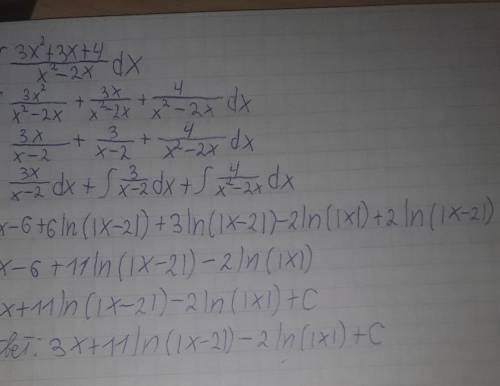 3x²+3x+4/x²-2x dx
3x²/x²-2x + 3x/x²-2x + 4/x²-2x dx
3x/x-2 + 3/x-2 + 4/x²-2x dx
3x/x-2 dx + ∫ 3/x-2 dx + ∫ 4/x²-2x dx
x-6+6ln(|x-2|)+3ln(|x-2|)-2ln(|x|)+2ln(|x-2|)
x-6+11ln(|x-2|)-2ln(|x|)
x+11ln(|x-2|)-2ln(|x|)+C
вет: 3x+11ln(|x-2|)-2ln(|x|)+C